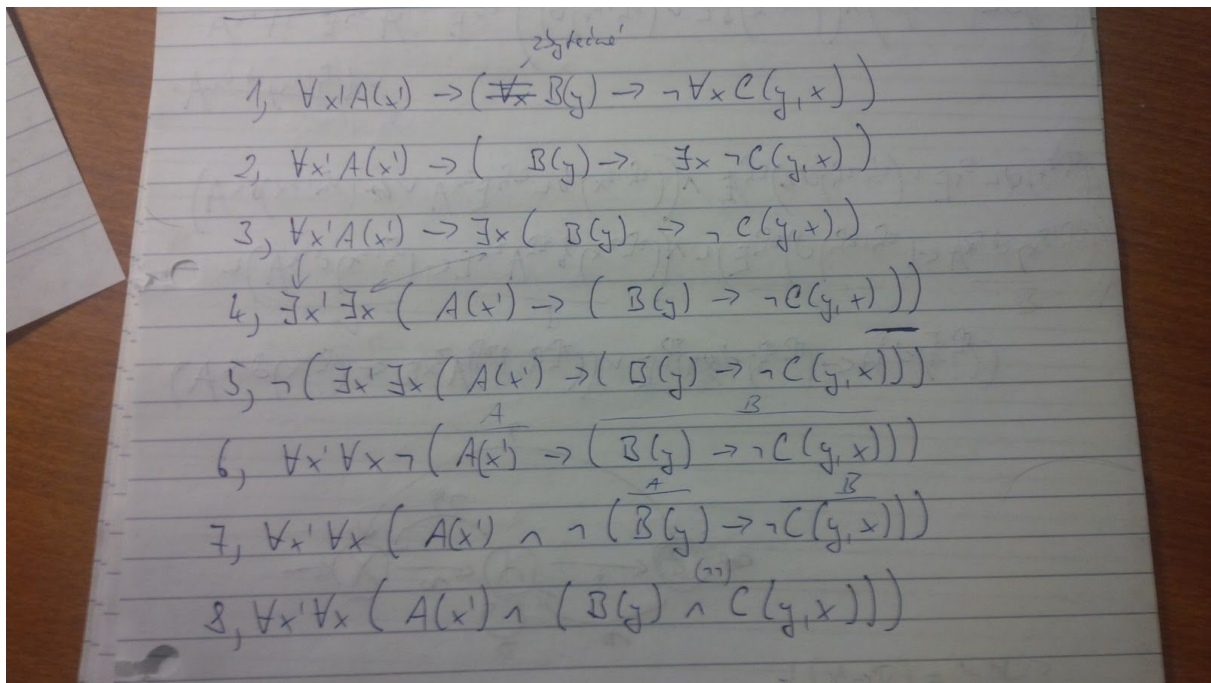 zbytečné
1, ∀x'A(x') → (∀x B(y) → ¬∀x C(y, x))
2, ∀x'A(x') → ( B(y) → ∃x ¬C(y, x))
3, ∀x'A(x') → ∃x ( B(y) → ¬C(y, x))
4, ∃x'∃x ( A(x') → ( B(y) → ¬C(y, x)))
5, ¬(∃x'∃x (A(x') → (B(y) → ¬C(y, x))))
A B
6, ∀x'∀x ¬(A(x') → (B(y) → ¬C(y, x)))
A B
7, ∀x'∀x ( A(x') ∧ ¬(B(y) → ¬C(y, x)))
(¬¬)
8, ∀x'∀x ( A(x') ∧ (B(y) ∧ C(y, x)))